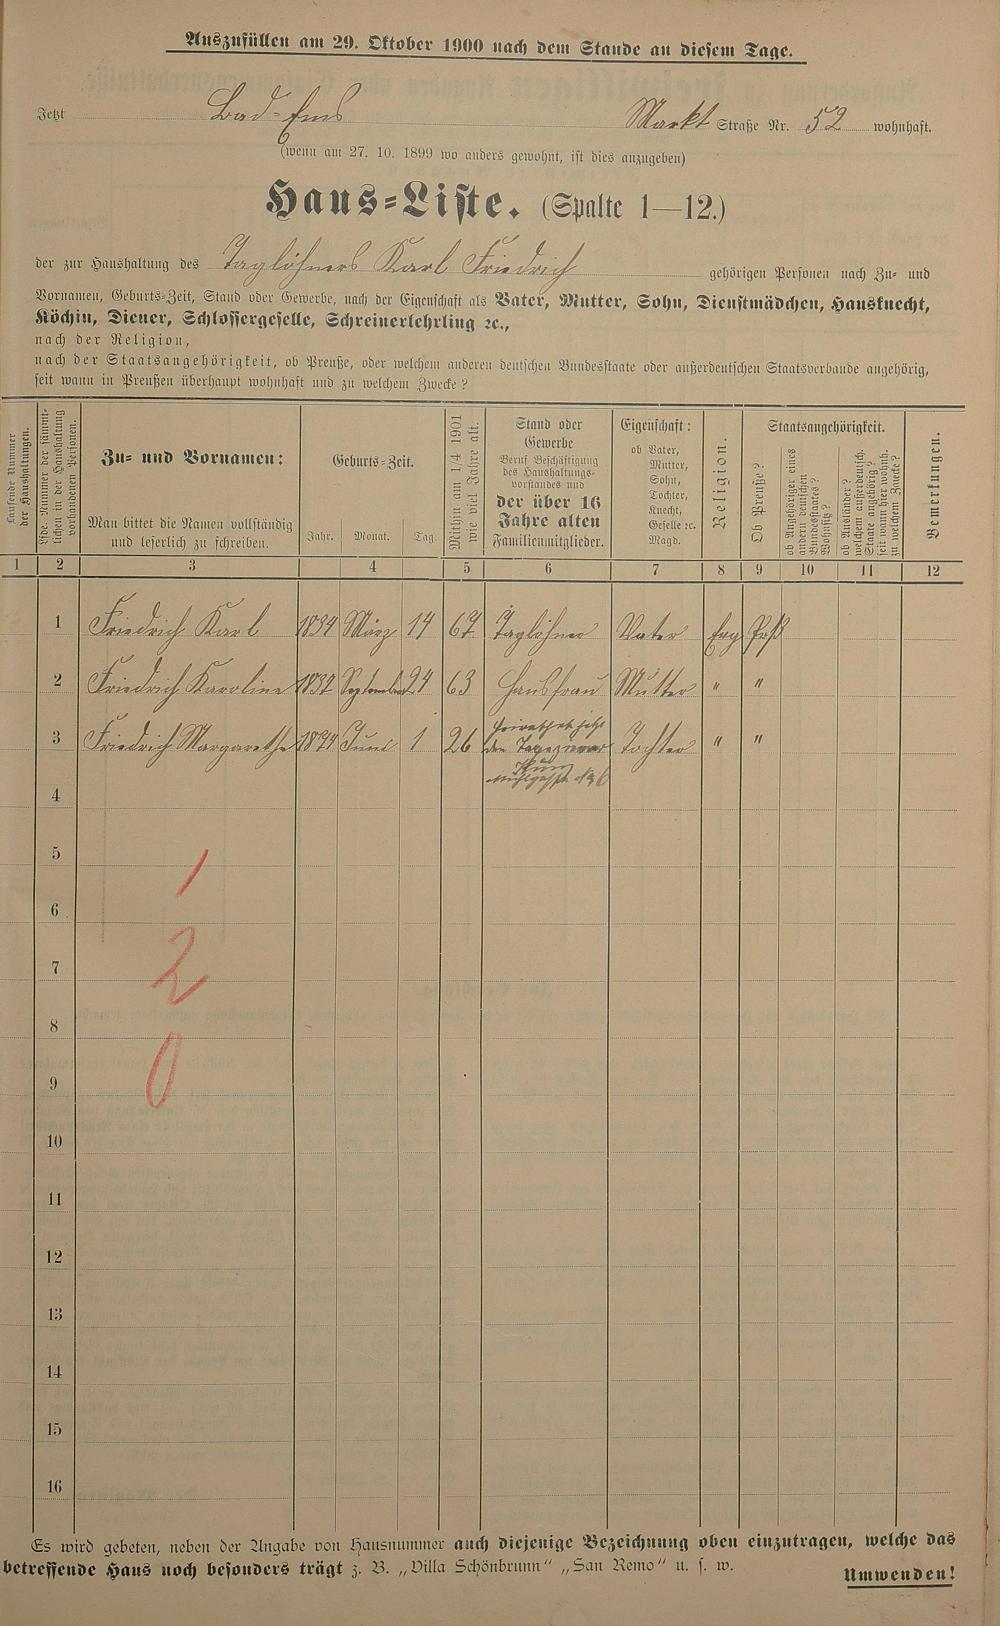 Auszufüllen am 29. Oktober 1900 nach dem Stande an diesem Tage.
Jetzt Bad-Ems Markt Straße Nr. 52 wohnhaft.
(wenn am 27. 10. 1899 wo anders gewohnt, ist dies anzugeben)
Haus-Liste. (Spalte 1—12.)
der zur Haushaltung des Taglöhners Karl Friedrich gehörigen Personen nach Zu- und
Vornamen, Geburts-Zeit, Stand oder Gewerbe, nach der Eigenschaft als Vater, Mutter, Sohn, Dienstmädchen, Hausknecht,
Köchin, Diener, Schlossergeselle, Schreinerlehrling ꝛc.,
nach der Religion,
nach der Staatsangehörigkeit, ob Preuße, oder welchem anderen deutschen Bundesstaate oder außerdeutschen Staatsverbande angehörig,
seit wann in Preußen überhaupt wohnhaft und zu welchem Zwecke?
Laufende Nummer
der Haushaltungen.
Lfde. Nummer der sämmt-
lichen in der Haushaltung
vorhandenen Personen.
Zu- und Vornamen:
Man bittet die Namen vollständig
und leserlich zu schreiben.
Geburts-Zeit.
Jahr. Monat. Tag.
Mithin am 1/4 1901
wie viel Jahre alt.
Stand oder
Gewerbe
Beruf Beschäftigung
des Haushaltungs-
vorstandes und
der über 16
Jahre alten
Familienmitglieder.
Eigenschaft:
ob Vater,
Mutter,
Sohn,
Tochter,
Knecht,
Geselle ꝛc.
Magd.
Religion.
Staatsangehörigkeit.
Ob Preuße?
ob Angehöriger eines
andern deutschen
Bundesstaates?
Wohnsitz?
ob Ausländer?
welchem außerdeutsch.
Staate angehörig?
seit wann hier wohnh.
zu welchem Zwecke?
Bemerkungen.
1 2 3 4 5 6 7 8 9 10 11 12
1 Friedrich Karl 1834 März 14 67 Taglöhner Vater Evg Prß
2 Friedrich Karoline 1837 September 24 63 Hausfrau Mutter " "
3 Friedrich Margarethe 1874 Juni 1 26 Tochter " "
heirathet jetzt
den Tapezierer
4
5
1
6
7
2
8
9
0
10
11
12
13
14
15
16
Es wird gebeten, neben der Angabe von Hausnummer auch diejenige Bezeichnung oben einzutragen, welche das
betreffende Haus noch besonders trägt z. B. „Villa Schönbrunn“ „San Remo“ u. s. w.
Umwenden!